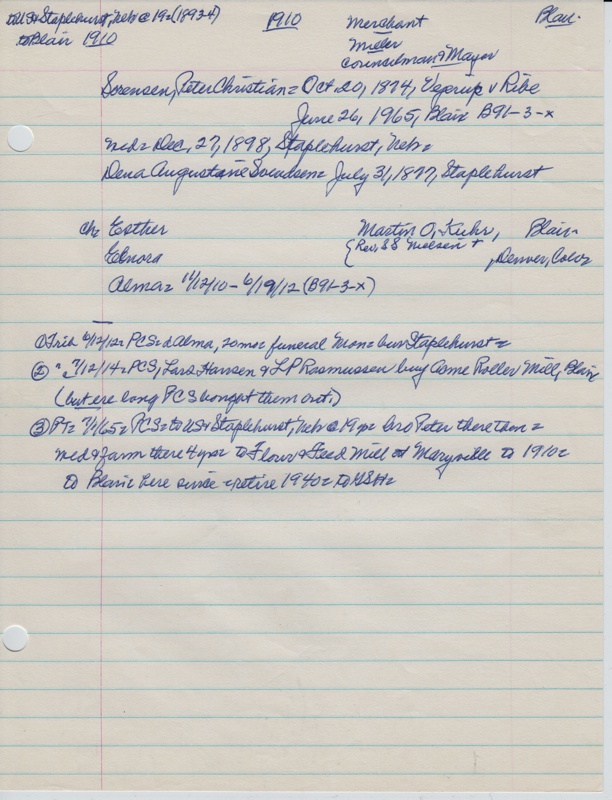 to US & Staplehurst, Neb @ 19= (1893-4)
to Blair 1910
1910
Merchant
Miller
Counselman & Mayor
Blair
Sorensen, Peter Christian = Oct. 20, 1874, v Ribe
June 26, 1965, Blair B91-3-x
md = Dec. 27, 1898, Staplehurst, Neb =
Dena Augustane Svendsen = July 31, 1877, Staplehurst
ch = Esther Martin O. Kuhr, Blair
Elnora {Rev. SS Nielsen + , Denver, Colo
Alma = 11/12/10 - 6/19/12 (B91-3-x)
① Trib 6/12/12 = PCS = d Alma, 20 mo = funeral Mon = bur Staplehurst =
② " = 7/12/14 = PCS, Lars Hansen & LP Rasmussen buy Come Roller Mill, Blair
(but ere long PCS bought them out.)
③ PT = 7/1/65 = PCS = to US & Staplehurst, Neb @ 19 yr = bro Peter there then =
md & farm there 4 yr = to Flour & Feed Mill at Marysville to 1910 =
to Blair here since = retire 1940 = to GSH =